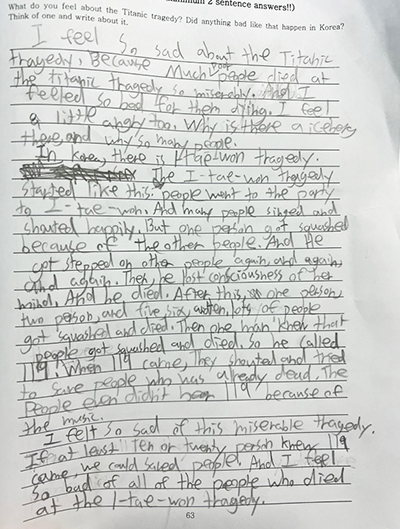 nimum 2 sentence answers!!)
What do you feel about the Titanic tragedy? Did anything bad like that happen in Korea?
Think of one and write about it.
I feel so sad about the Titanic
tragedy. Because Much people died at
the titanic tragedy so miserably. And I
feeled so bad for them dying. I feel
a little angry too. Why is there a iceberg
there and why so many people.
In Korea, there is I-tae-won tragedy.
The I-tae-won tragedy
started like this. People went to the party
to I-tae-won. And many people singed and
shouted happily. But one person got squashed
because of the other people. And He
got stepped on other people again, and again,
and again. Then, he lost consciousness of her
And he died. After this, one person,
two person, and five, six, lots of people
got squashed and died. Then one man knew that
people got squashed and died. So he called
119. When 119 came, They shouted and tried
to save people who was already dead. The
People even didn't hear 119 because of
the music.
I felt so sad of this miserable tragedy.
If at least Ten or twenty person knew 119
came, we could saved people. And I feel
so bad of all of the people who died
at the I-tae-won tragedy.
63